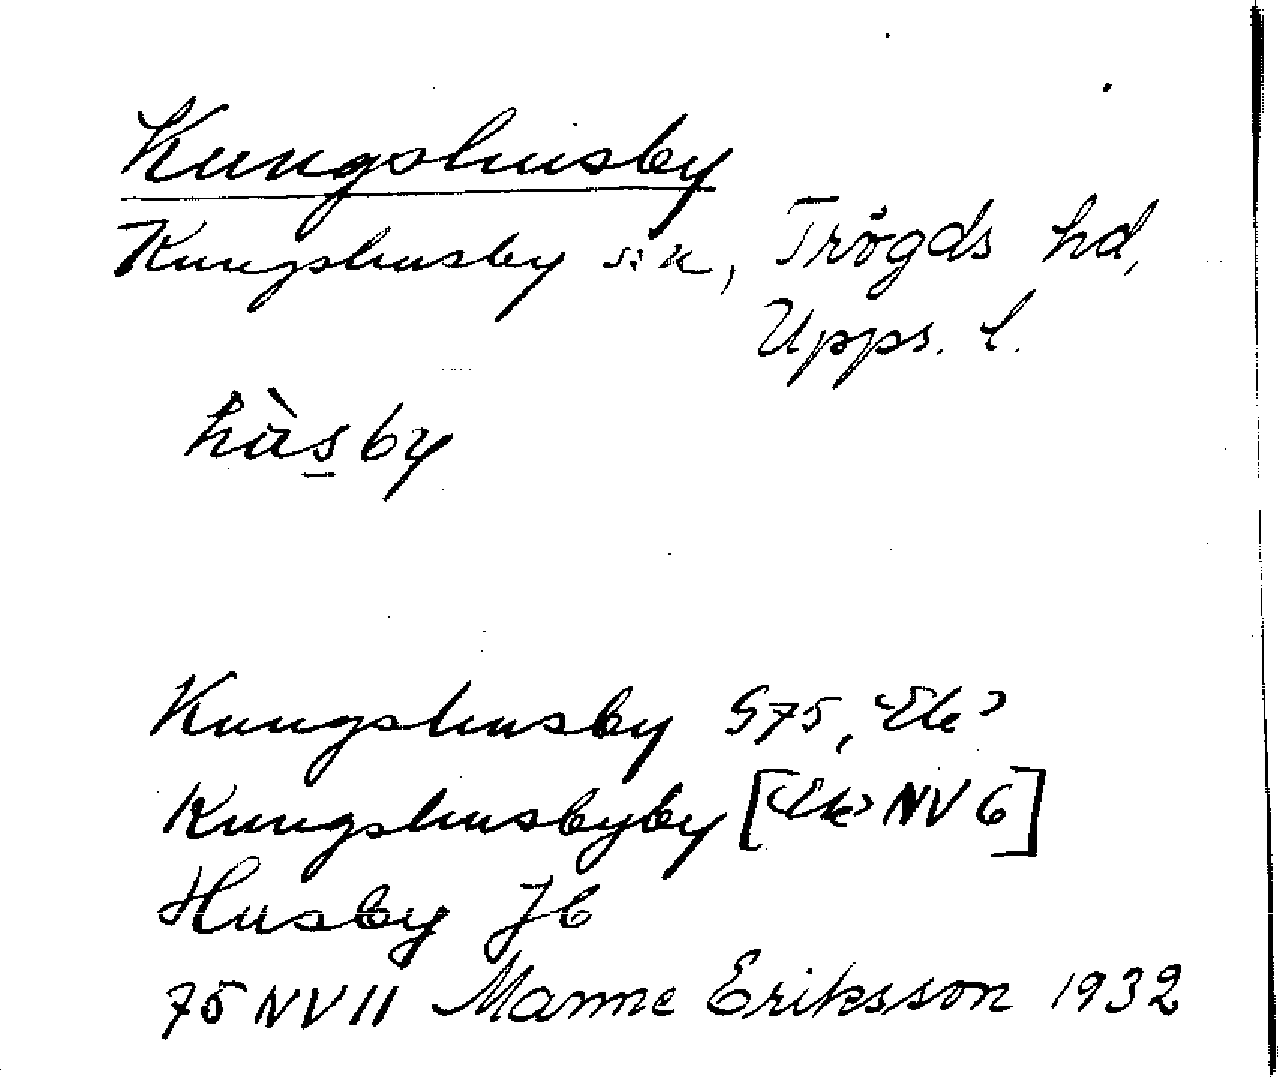 Kungshusby
Kungshusby sn, Trögds hd,
Upps. l.
hùsby
Kungshusby G75, Ek
Kungshusbyby [Ek NV 6]
Husby Jb
75 NV 11 Manne Eriksson 1932